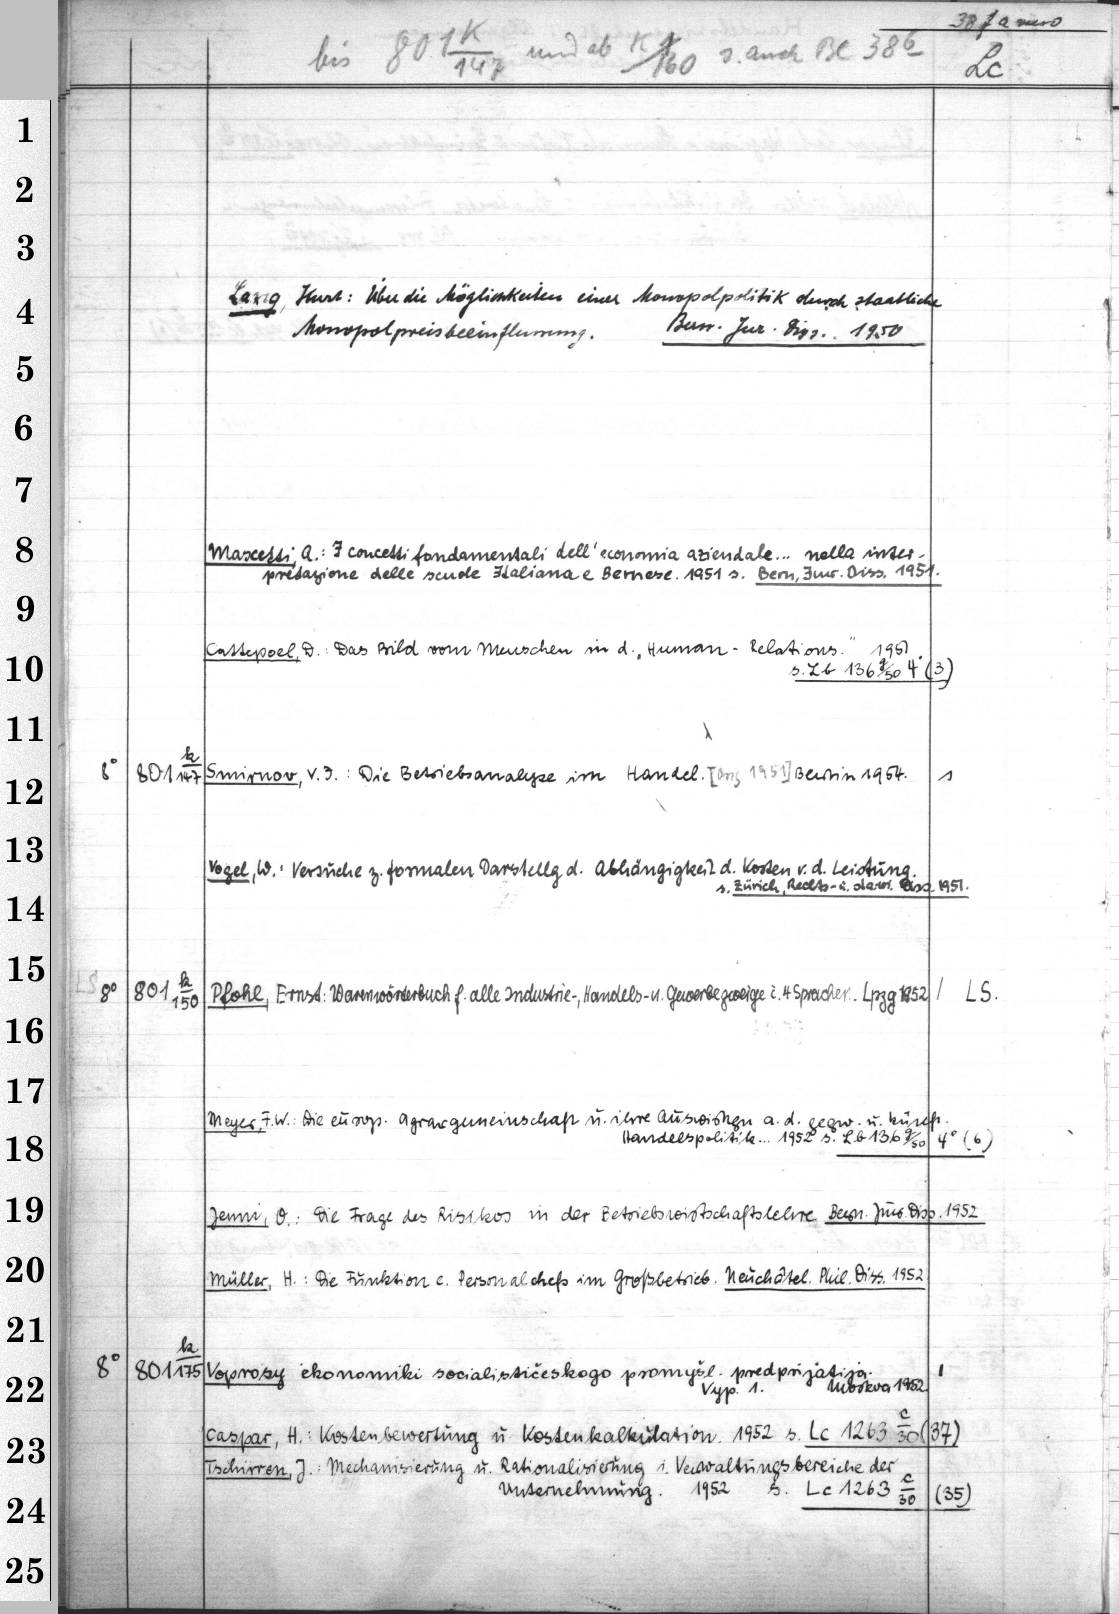 38 f a vero
bis 801 K/147 und ab K/160 s. auch BL 386
Lc
1
2
3
4
5
6
7
8
9
10
11
12
13
14
15
16
17
18
19
20
21
22
23
24
25
Lang, Kurt: Über die Möglichkeiten einer Monopolpolitik durch staatliche
Monopolpreisbeeinflussung. Bern. Jur. Diss. 1950
Mascetti, A.: I concetti fondamentali dell'economia aziendale... nella inter-
pretazione delle scuole Italiana e Bernese. 1951 s. Bern, Jur. Diss. 1951.
Cattepoel, D.: Das Bild vom Menschen in d. „Human-Relations." 1951
s. Lb 136 g/50 4° (3)
8° 801 k/147 Smirnov, V.I.: Die Betriebsanalyse im Handel. [Orig 1951] Berlin 1954. 1
Vogel, W.: Versuche z. formalen Darstellg d. Abhängigkeit d. Kosten v. d. Leistung.
s. Zürich, Rechts- u. staatsw. Diss. 1951.
LS 8° 801 k/150 Pfohl, Ernst: Warenwörterbuch f. alle Industrie-, Handels- u. Gewerbezweige i. 4 Sprachen. Lpzg 1952 / LS.
Meyer, F.W.: Die europ. Agrargemeinschaft u. ihre Auswirkgn a. d. gegw. u. künft.
Handelspolitik... 1952 s. Lb 136 g/50 4° (6)
Jenni, O.: Die Frage des Risikos in der Betriebswirtschaftslehre Bern. Jur. Diss. 1952
Müller, H.: Die Funktion e. Personalchefs im Großbetrieb. Neuchâtel. Phil. Diss. 1952
8° 801 k/175 Voprosy ėkonomiki socialističeskogo promyšl. predprijatija. 1
Vyp. 1. Moskva 1952
Caspar, H.: Kostenbewertung u. Kostenkalkulation. 1952 s. Lc 1263 c/30 (37)
Tschirren, J.: Mechanisierung u. Rationalisierung i. Verwaltungsbereiche der
Unternehmung. 1952 s. Lc 1263 c/30 (35)